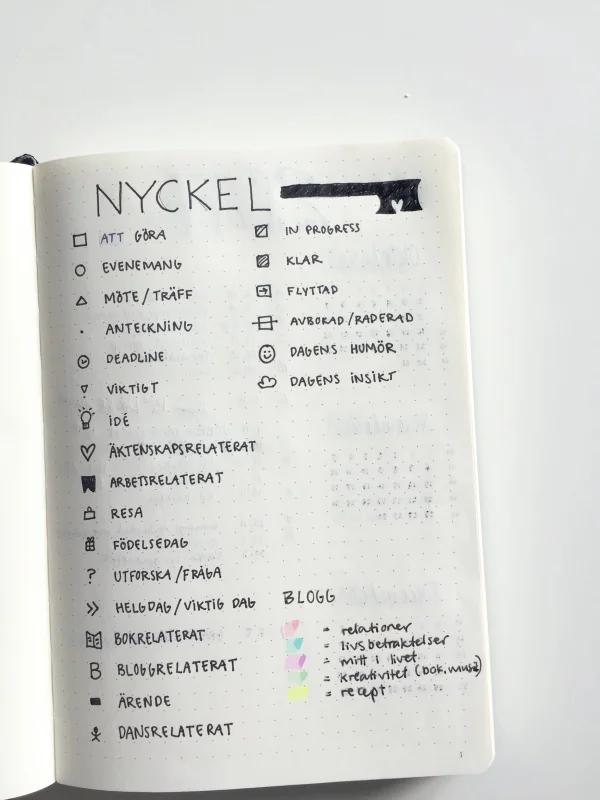 NYCKEL
ATT GÖRA
EVENEMANG
MÖTE / TRÄFF
ANTECKNING
DEADLINE
VIKTIGT
IDÉ
ÄKTENSKAPSRELATERAT
ARBETSRELATERAT
RESA
FÖDELSEDAG
? UTFORSKA / FRÅGA
>> HELGDAG / VIKTIG DAG
BOKRELATERAT
B BLOGGRELATERAT
ÄRENDE
DANSRELATERAT
IN PROGRESS
KLAR
FLYTTAD
AVBOKAD / RADERAD
DAGENS HUMÖR
DAGENS INSIKT
BLOGG
= relationer
= livsbetraktelser
= mitt i livet
= kreativitet (bok, musik)
= recept
1